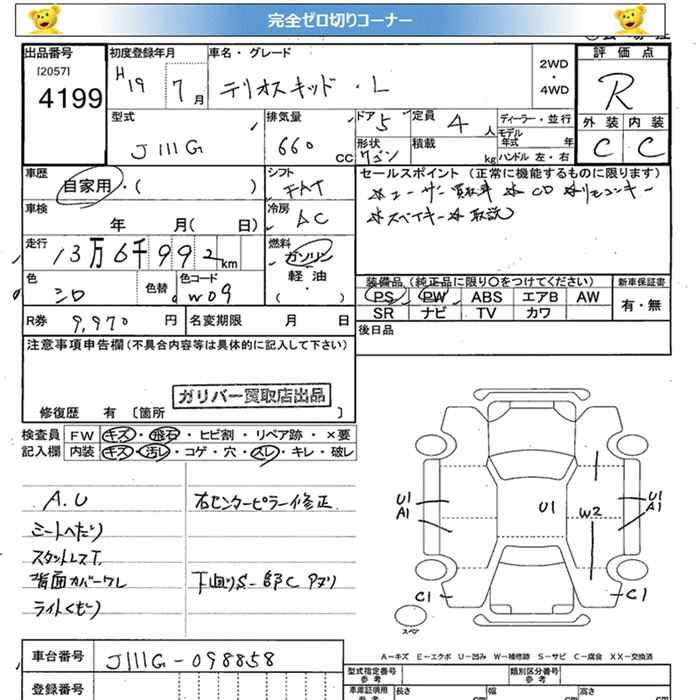 完全ゼロ切りコーナー
出品番号 初度登録年月 車名・グレード 評価点
[2057] H19 7月 テリオスキッド・L 2WD・4WD R
4199
型式 排気量 ドア 5 定員 4人 ディーラー・並行 外装 内装
J111G 660cc 形状 ワゴン 積載 kg モデル年式 年 C C
ハンドル 左・右
車歴 シフト セールスポイント(正常に機能するものに限ります)
自家用・( ) FAT ☆ユーザー買取車 ☆CD ☆リモコンキー
車検 冷房 ☆スペアキー☆取説
年 月( 日) AC
走行 燃料
13万6千992km ガソリン
色 色替 色コード 軽油
シロ W09 ・( )
装備品(純正品に限り○をつけてください) 新車保証書
PS PW ABS エアB AW 有・無
SR ナビ TV カワ
R券 9,970円 名変期限 月 日 後日品
注意事項申告欄(不具合内容等は具体的に記入して下さい)
ガリバー買取店出品
修復歴 有 〔箇所 〕
検査員 FW キズ・飛石・ヒビ割・リペア跡・×要
記入欄 内装 キズ・汚レ・コゲ・穴・スレ・キレ・破レ
A.U 右センターピラー修正
シートへたり
スタットレスT.
背面カバーワレ 下回りS一部C Pズリ
ライトくもり
U1 U1 W2 U1
A1 A1
C1 C1
スペア
A−キズ E−エクボ U−凹み W−補修跡 S−サビ C−腐食 XX−交換済
車台番号 J111G-098858 型式指定番号 参考 類別区分番号 参考
登録番号 車庫証明用 参考 長さ cm 幅 cm 高さ cm